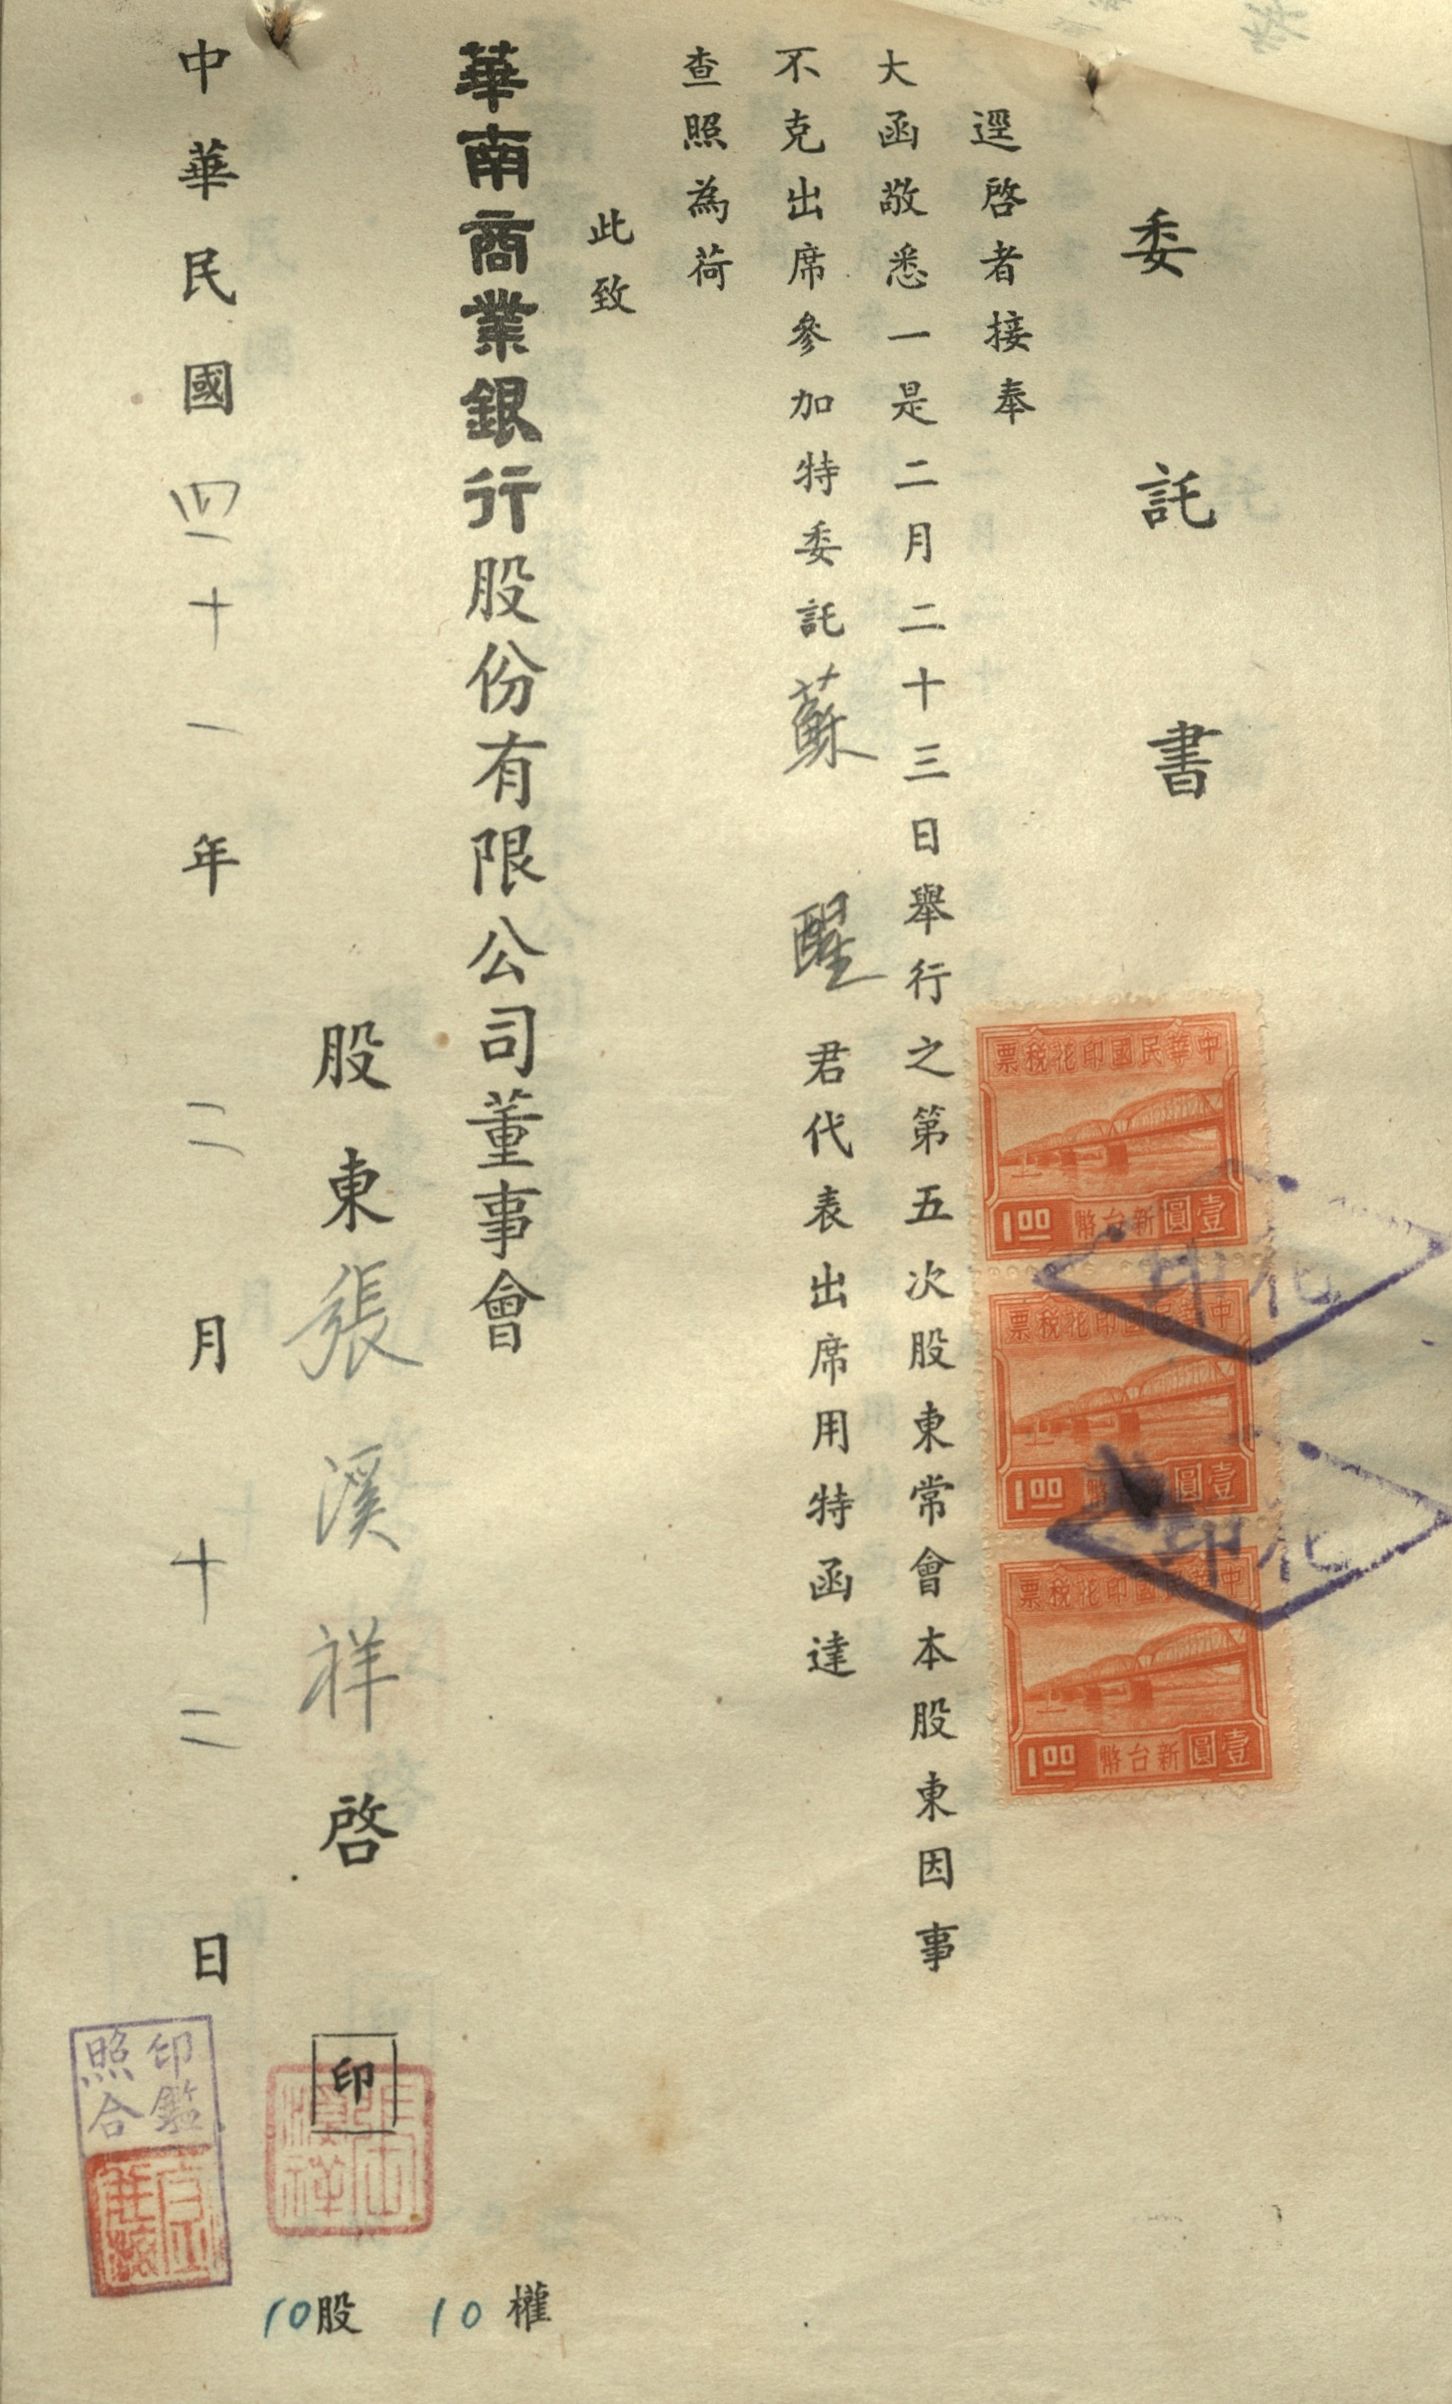 委託書
逕啓者接奉
大函敬悉一是二月二十三日舉行之第五次股東常會本股東因事
不克出席參加特委託蘇醒君代表出席用特函達
查照為荷
此致
華南商業銀行股份有限公司董事會
股東張溪祥啓
印
中華民國四十一年二月十二日
印鑑
照合
10股 10權
中華民國印花稅票
壹圓新台幣
1.00
印花
中華民國印花稅票
壹圓
1.00
印花
中華民國印花稅票
壹圓新台幣
1.00